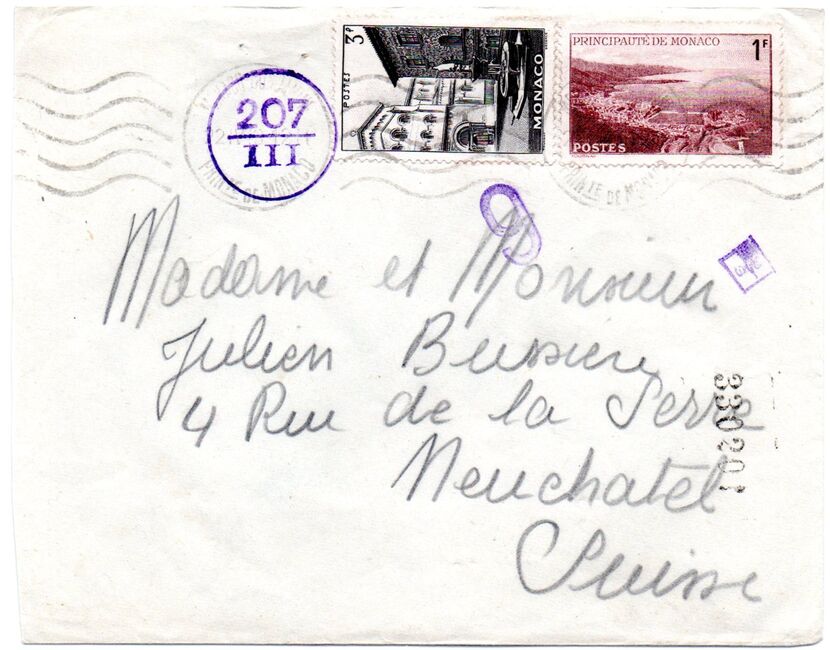 3F
POSTES
MONACO
PRINCIPAUTÉ DE MONACO
1F
POSTES
207
III
PRINCIPAUTE DE MONACO
DE MONACO
Madame et Monsieur
Julien Bussiere
4 Rue de la Serre
Neuchatel
Suisse
330201